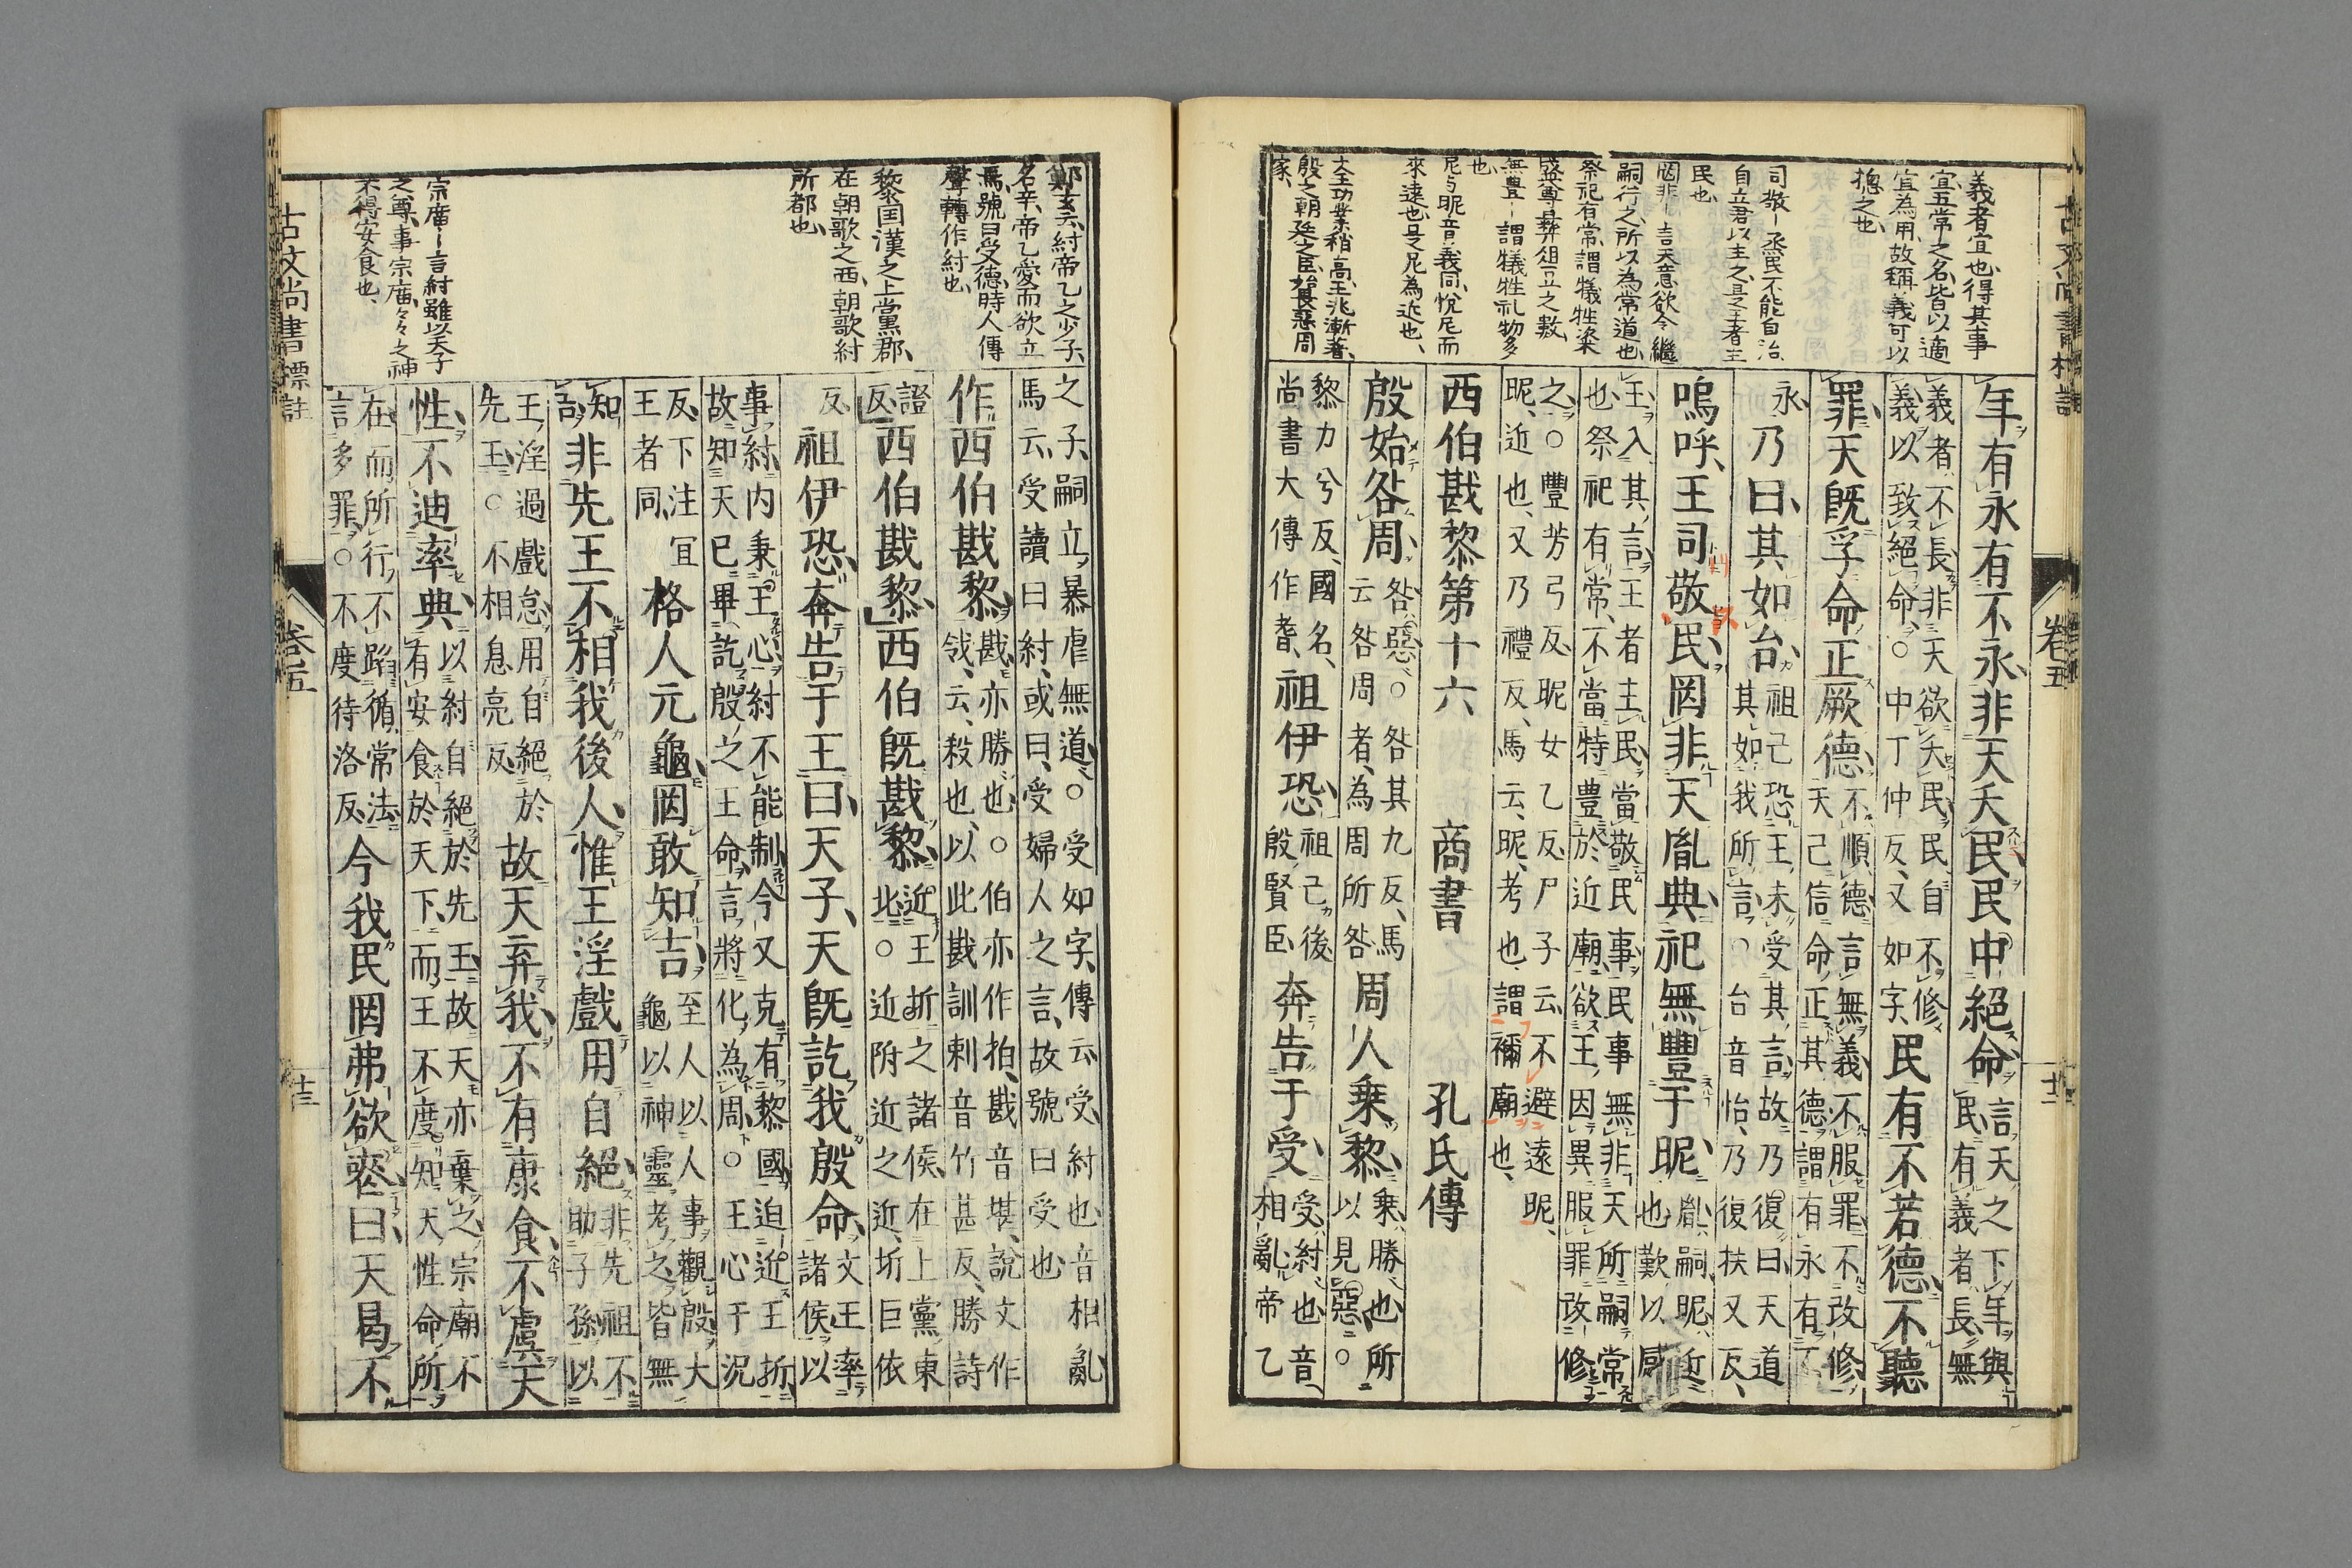 古文尚書標註 卷五 十二
義者宜也、得其事
宜、五常之名、皆以適
宜為用、故稱義可以
摠之也
司敬ー烝民不能自治
自立君以主之、是王者主
民也
罔非ー言天意欲令繼
嗣行之、所以為常道也
祭祀有常、謂犠牲粢
盛尊彝俎豆之数
無豊ー謂犠牲礼物多
也
尼与昵音義同、悅尼而
來遠也、是尼為近也、
大王功業稍高、王兆漸著、
殷之朝廷之臣、始畏惡周
家、
年有永有不永、非天夭民、民中絕命、言天之下年與民、有義者長、無
義者不長、非天欲夭民、民自不修義、以致絕命、○中丁仲反、又如字、民有不若德、不聽
罪、天旣孚命正厥德、不順德、言無義、不服罪、不改修、天已信命、正其德、謂有永有不
永、乃曰、其如台、祖己恐王未受其言、故乃復曰、天道其如我所言、○台音怡、乃復扶又反、
嗚呼、王司敬民、罔非天胤典、祀無豐于昵、胤嗣、昵近也、歎以感
王入其言、王者主民、當敬民事、民事無非天所嗣常也、祭祀有常、不當特豊於近廟、欲王因異服罪改修
之、○豐芳弓反、昵女乙反、尸子云、不避遠昵、昵、近也、又乃禮反、馬云、昵、考也、謂禰廟也、
西伯戡黎第十六 商書 孔氏傳
殷始咎周、咎、惡、○咎其九反、馬云咎周者、為周所咎 周人乘黎、乘、勝也、所以見惡、○
黎力兮反、國名、尚書大傳作耆、祖伊恐、祖己後殷賢臣 奔告于受、受、紂也、音相亂、帝乙
之子、嗣立、暴虐無道、○受如字、傳云受、紂也、音相亂、馬云、受讀曰紂、或曰、受婦人之言、故號曰受也、
作西伯戡黎、戡亦勝也、○伯亦作柏、戡音堪、說文作𢦟、云、殺也、以此戡訓剌音竹甚反、勝詩
證反、西伯戡黎、西伯旣戡黎、近王圻之諸侯、在上黨東北、○近附近之近、圻巨依
反、祖伊恐、奔告于王曰、天子、天旣訖我殷命、文王率諸侯、以
事紂、內秉王心、紂不能制、今又克有黎國、迫近王圻、故知天已畢訖殷之王命、言將化為周、○王心于況
反、下注宜王者同、格人元龜、罔敢知吉、至人以人事觀殷、大龜以神靈考之、皆無
知吉、非先王不相我後人、惟王淫戲用自絕、非先祖不助子孫、以
王淫過戲怠、用自絕於先王、○不相息亮反、故天弃我、不有康食、不虞天
性、不迪率典、以紂自絕於先王、故天亦棄之、宗廟不有安食於天下、而王不度知天性命所
在、而所行不蹈循常法、言多罪、○不度待洛反、今我民罔弗欲喪、曰、天曷不
鄭玄云、紂帝乙之少子、
名辛、帝乙愛而欲立
焉、號曰受德、時人傳
聲轉作紂也、
黎国漢之上黨郡、
在朝歌之西、朝歌紂
所都也、
宗廟ー言紂雖以天子
之尊事宗庙、々々之神
不得安食也、
古文尚書標註 卷五 十三